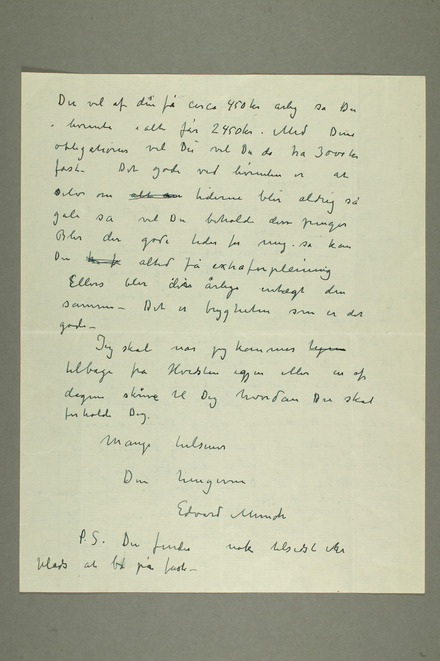 Du vil af din få circa 450 kr årlig så Du
i livrente i alt får 2450 kr. Med Dine
obligationer vil Du vil Du da ha 3000 kr
fast – Det gode ved livrenten er at
selv om tiderne blir aldrig så
gale så vil Du beholde disse penger
Blir der gode tider for mig så kan
Du altid få extraforpleining
Ellers blir din årlige indtægt den
samme – Det er trygheden som er det
gode –
Jeg skal når jeg kommer hjem
tilbage fra Hvidsten igjen eller en af
dagene skrive til Dig hvordan Du skal
forholde Dig.
Mange hilsener
Din hengivne
Edvard Munch
P.S. Du finder nok tilsidst
Plads at bo på fast –